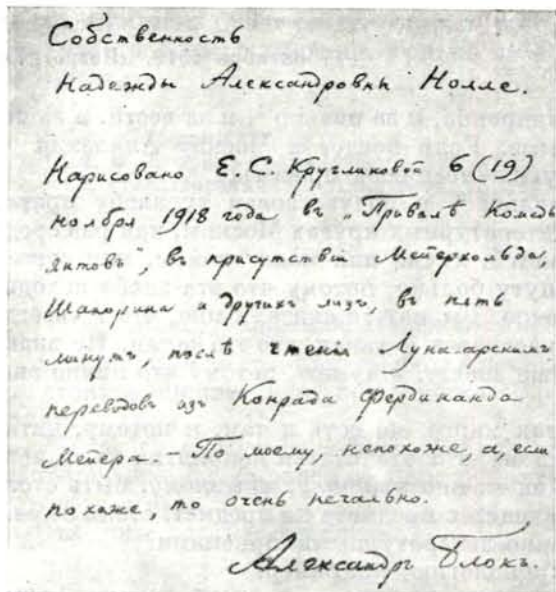 Собственность
Надежды Александровны Нолле.
Нарисовано Е. С. Кругликовой 6 (19)
ноября 1918 года въ „Привалѣ Комедь
янтовъ“, въ присутствіи Мейерхольда,
Шапорина и другихъ лицъ, въ пять
минутъ, послѣ чтенія Луначарскимъ
переводовъ изъ Конрада Фердинанда
Мейера – По моему, непохоже, а, если
похоже, то очень печально.
Александръ Блокъ.